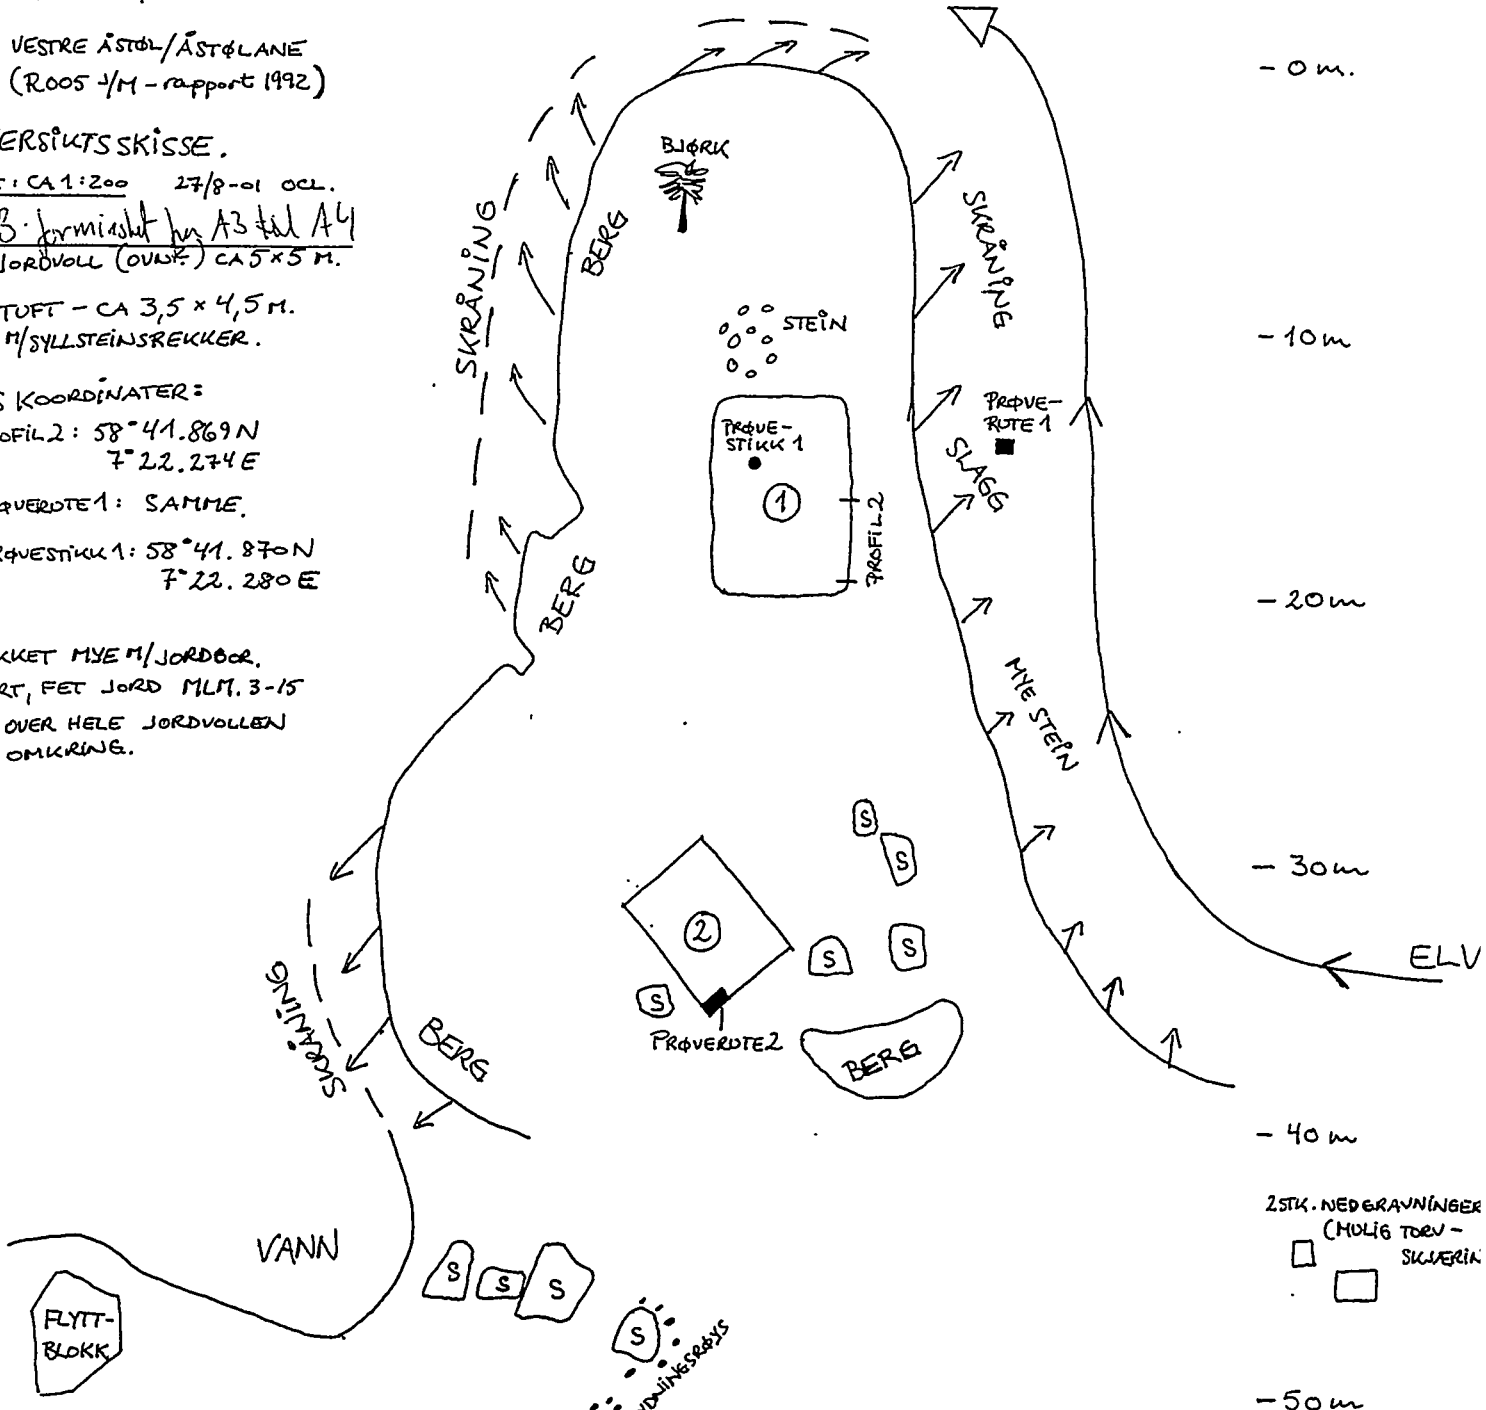 VESTRE ÅSTØL/ÅSTØLANE
(R005 J/M - rapport 1992)
ERSIKTSSKISSE.
: CA 1:200 27/8-01 OCL.
B. forminsket fra A3 til A4
JORDVOLL (OVNR.) CA 5×5 M.
TUFT - CA 3,5 × 4,5 M.
M/SYLLSTEINSREKKER.
S KOORDINATER:
OFIL 2: 58°41.869 N
7°22.274 E
ØVERUTE 1: SAMME.
RØVESTIKK 1: 58°41.870 N
7°22.280 E
KKET MYE M/JORDBOR.
RT, FET JORD MLM. 3-15
OVER HELE JORDVOLLEN
OMKRING.
SKRÅNING
BERG
BJØRK
SKRÅNING
STEIN
PRØVE-
STIKK 1
1
PROFIL 2
PRØVE-
RUTE 1
SLAGG
BERG
MYE STEIN
S
S
2
S
S
S
PRØVERUTE 2
BERG
ELV
SKRÅNING
BERG
VANN
FLYTT-
BLOKK
S
S
S
S
DNINGSRØYS
- 0 m.
- 10 m
- 20 m
- 30 m
- 40 m
2 STK. NEDGRAVNINGER
(MULIG TORV-
SKJÆRIN
- 50 m